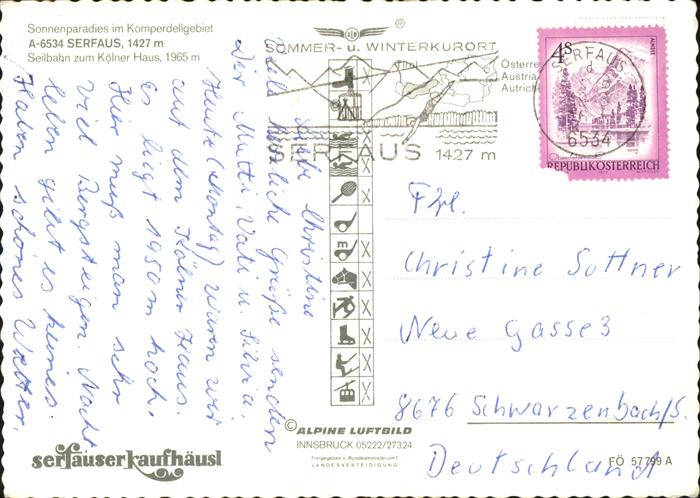 Sonnenparadies im Komperdellgebiet
A-6534 SERFAUS, 1427 m
Seilbahn zum Kölner Haus, 1965 m
SOMMER- u. WINTERKURORT
Tirol
Österre
Austria
Autrich
SERFAUS 1427 m
4S
ALMSEE
REPUBLIK ÖSTERREICH
SERFAUS
d
6534
Liebe Christine
Viele herzliche Grüße senden
Dir Mutti, Vati u. Silvia.
Heute (Montag) waren wir
auf dem Kölner Haus.
Es ligt 1950 m hoch.
Hier muß man sehr
viel Bergsteigen. Nacht
leben gibt es keines.
Haben schönes Wetter.
Frl.
Christine Sottner
Neue Gasse 3
8676 Schwarzenbach/S.
Deutschland
serfauser kaufhäusl
© ALPINE LUFTBILD
INNSBRUCK 05222/27324
Freigegeben v. Bundesministerium f.
LANDESVERTEIDIGUNG
FÖ 57799 A